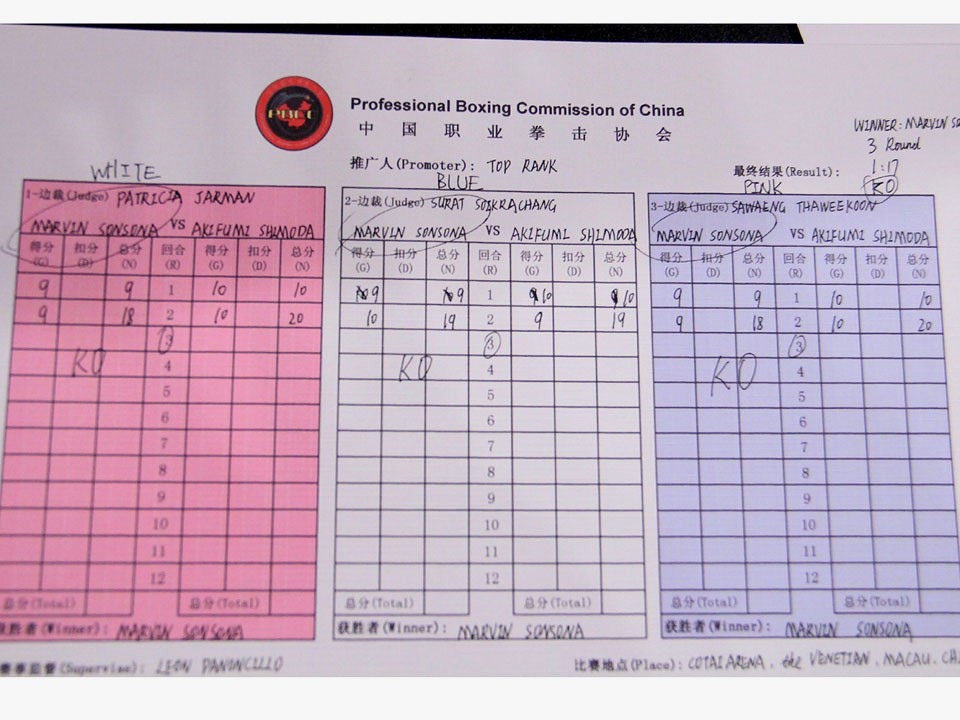 PBCC
Professional Boxing Commission of China
中国职业拳击协会
WINNER: MARVIN
3 Round
推广人(Promoter): TOP RANK
最终结果(Result): 1:17
KO
WHITE
BLUE
PINK
1-边裁(Judge) PATRICIA JARMAN
MARVIN SONSONA VS AKIFUMI SHIMODA
得分 扣分 总分 回合 得分 扣分 总分
(G) (D) (N) (R) (G) (D) (N)
9 9 1 10 10
9 18 2 10 20
3
KO 4
5
6
7
8
9
10
11
12
总分(Total) 总分(Total)
获胜者(Winner): MARVIN SONSONA
2-边裁(Judge) SURAT SOIKRACHANG
MARVIN SONSONA VS AKIFUMI SHIMODA
得分 扣分 总分 回合 得分 扣分 总分
(G) (D) (N) (R) (G) (D) (N)
9 9 1 10 10
10 19 2 9 19
3
KO 4
5
6
7
8
9
10
11
12
总分(Total) 总分(Total)
获胜者(Winner): MARVIN SONSONA
3-边裁(Judge) SAWAENG THAWEEKOON
MARVIN SONSONA VS AKIFUMI SHIMODA
得分 扣分 总分 回合 得分 扣分 总分
(G) (D) (N) (R) (G) (D) (N)
9 9 1 10 10
9 18 2 10 20
3
KO 4
5
6
7
8
9
10
11
12
总分(Total) 总分(Total)
获胜者(Winner): MARVIN SONSONA
赛事监督(Supervise): LEON PANONCILLO
比赛地点(Place): COTAI ARENA, the VENETIAN, MACAU, CHI